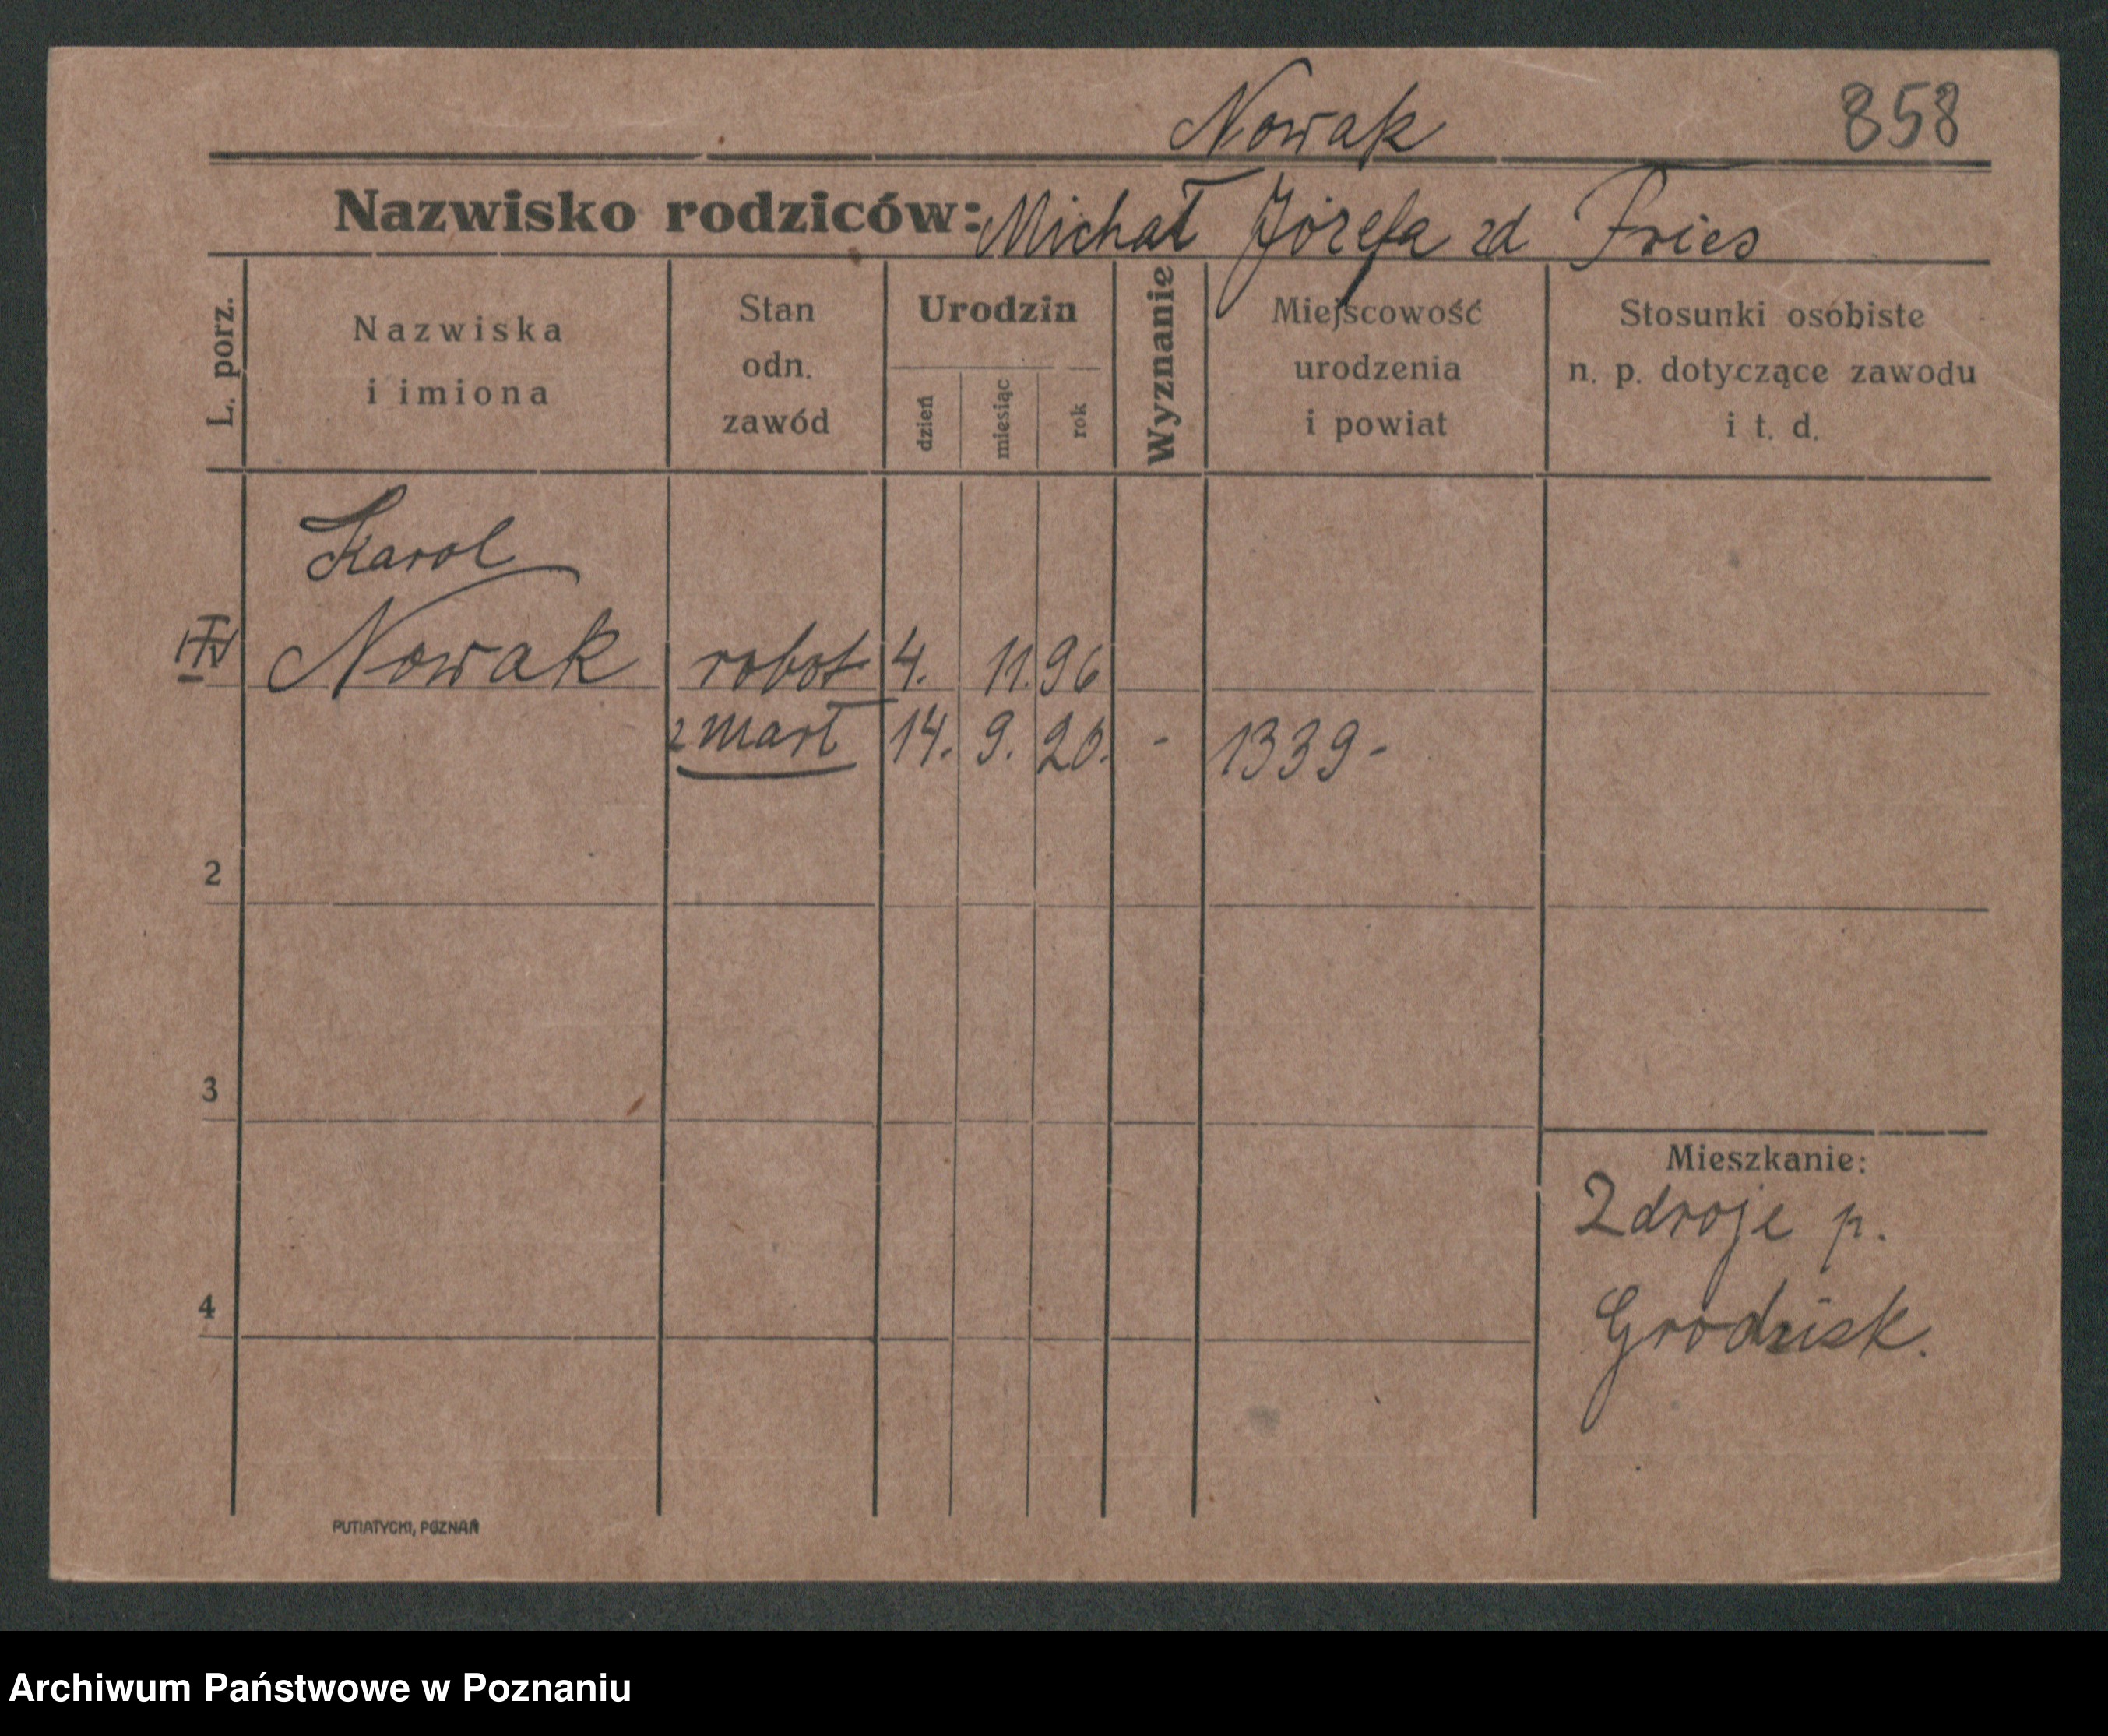 Nowak 858
Nazwisko rodziców: Michał Józefa zd Fries
L. porz.
Nazwiska
i imiona
Stan
odn.
zawód
Urodzin
dzień
miesiąc
rok
Wyznanie
Miejscowość
urodzenia
i powiat
Stosunki osóbiste
n. p. dotyczące zawodu
i t. d.
Karol
Nowak robot 4. 11. 96
zmarł 14. 9. 20. - 1339-
2
3
4
Mieszkanie:
Zdroje p.
Grodzisk.
PUTIATYCKI, POZNAŃ
Archiwum Państwowe w Poznaniu